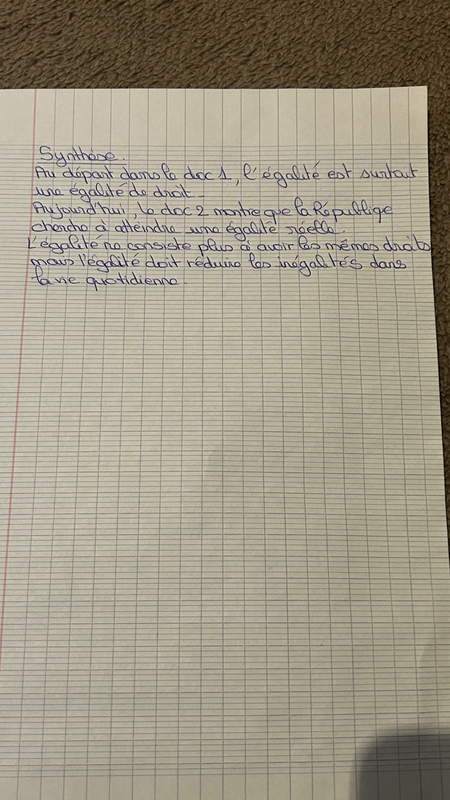 Synthèse.
Au départ dans le doc 1, l'égalité est surtout
une égalité de droit.
Aujourd'hui, le doc 2 montre que la Républige
cherche à atteindre une égalité réelle.
L'égalité ne consiste plus à avoir les mêmes droits
mais l'égalité doit réduire les inégalités dans
la vie quotidienne.